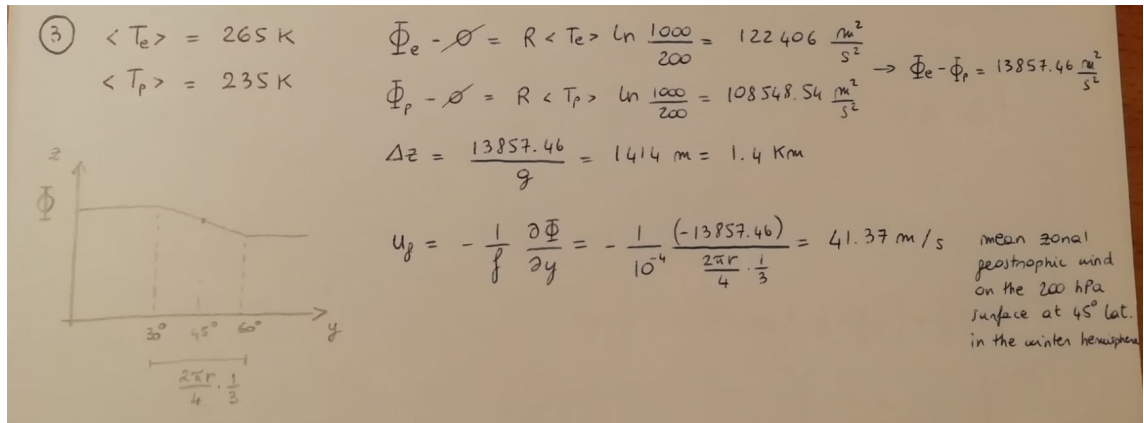 ③ < Te > = 265 K
< Tp > = 235 K
Φe - 0̸ = R < Te > ln 1000/200 = 122 406 m²/s²
Φp - 0̸ = R < Tp > ln 1000/200 = 108548.54 m²/s²
→ Φe - Φp = 13857.46 m²/s²
Δz = 13857.46/g = 1414 m = 1.4 Km
ug = - 1/f ∂Φ/∂y = - 1/10⁻⁴ (-13857.46)/(2πr/4 · 1/3) = 41.37 m/s
mean zonal
geostrophic wind
on the 200 hPa
surface at 45° lat.
in the winter hemisphere
z
Φ
30° 45° 60° y
2πr/4 · 1/3